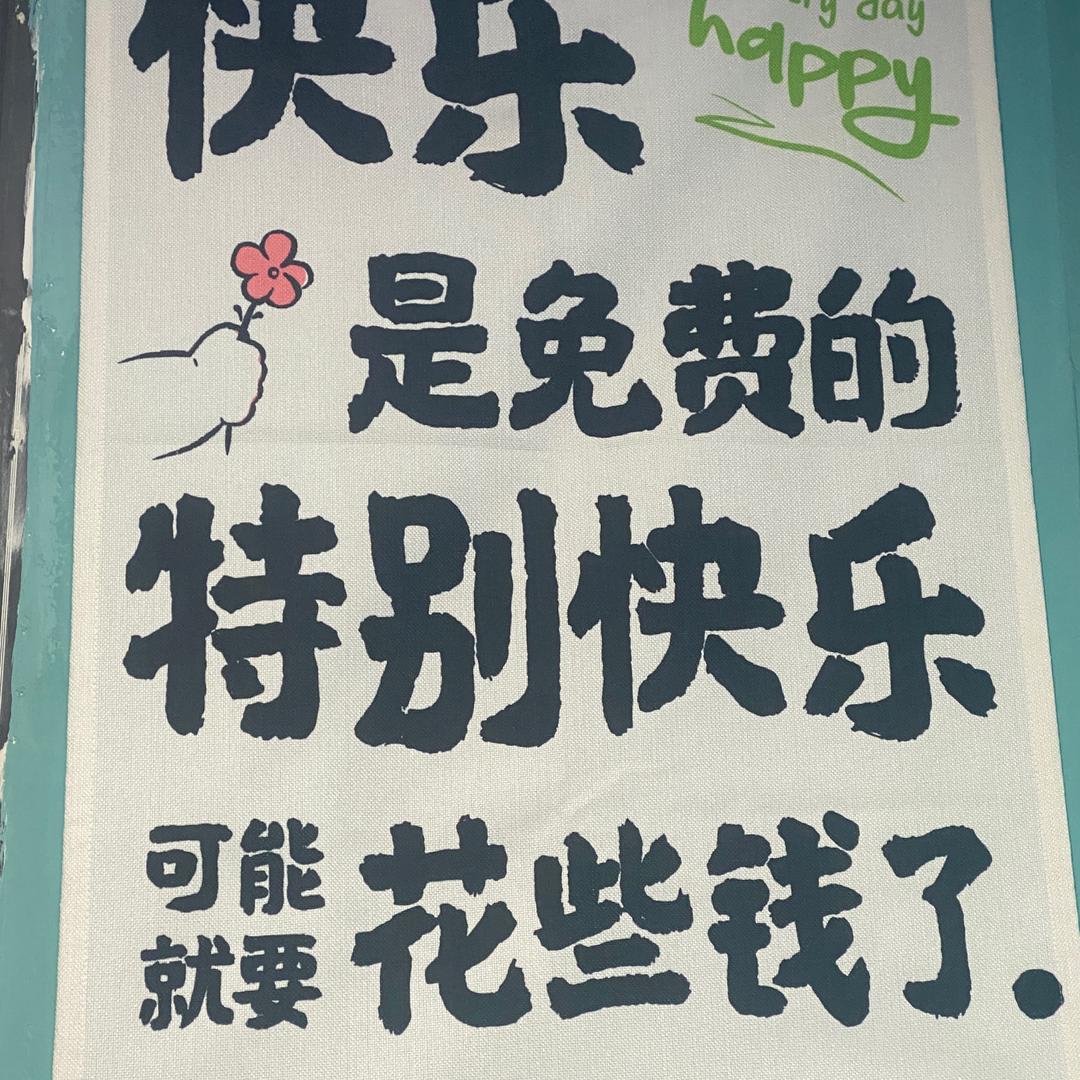 快乐
day
happy
是免费的
特别快乐
可能
就要
花些钱了.